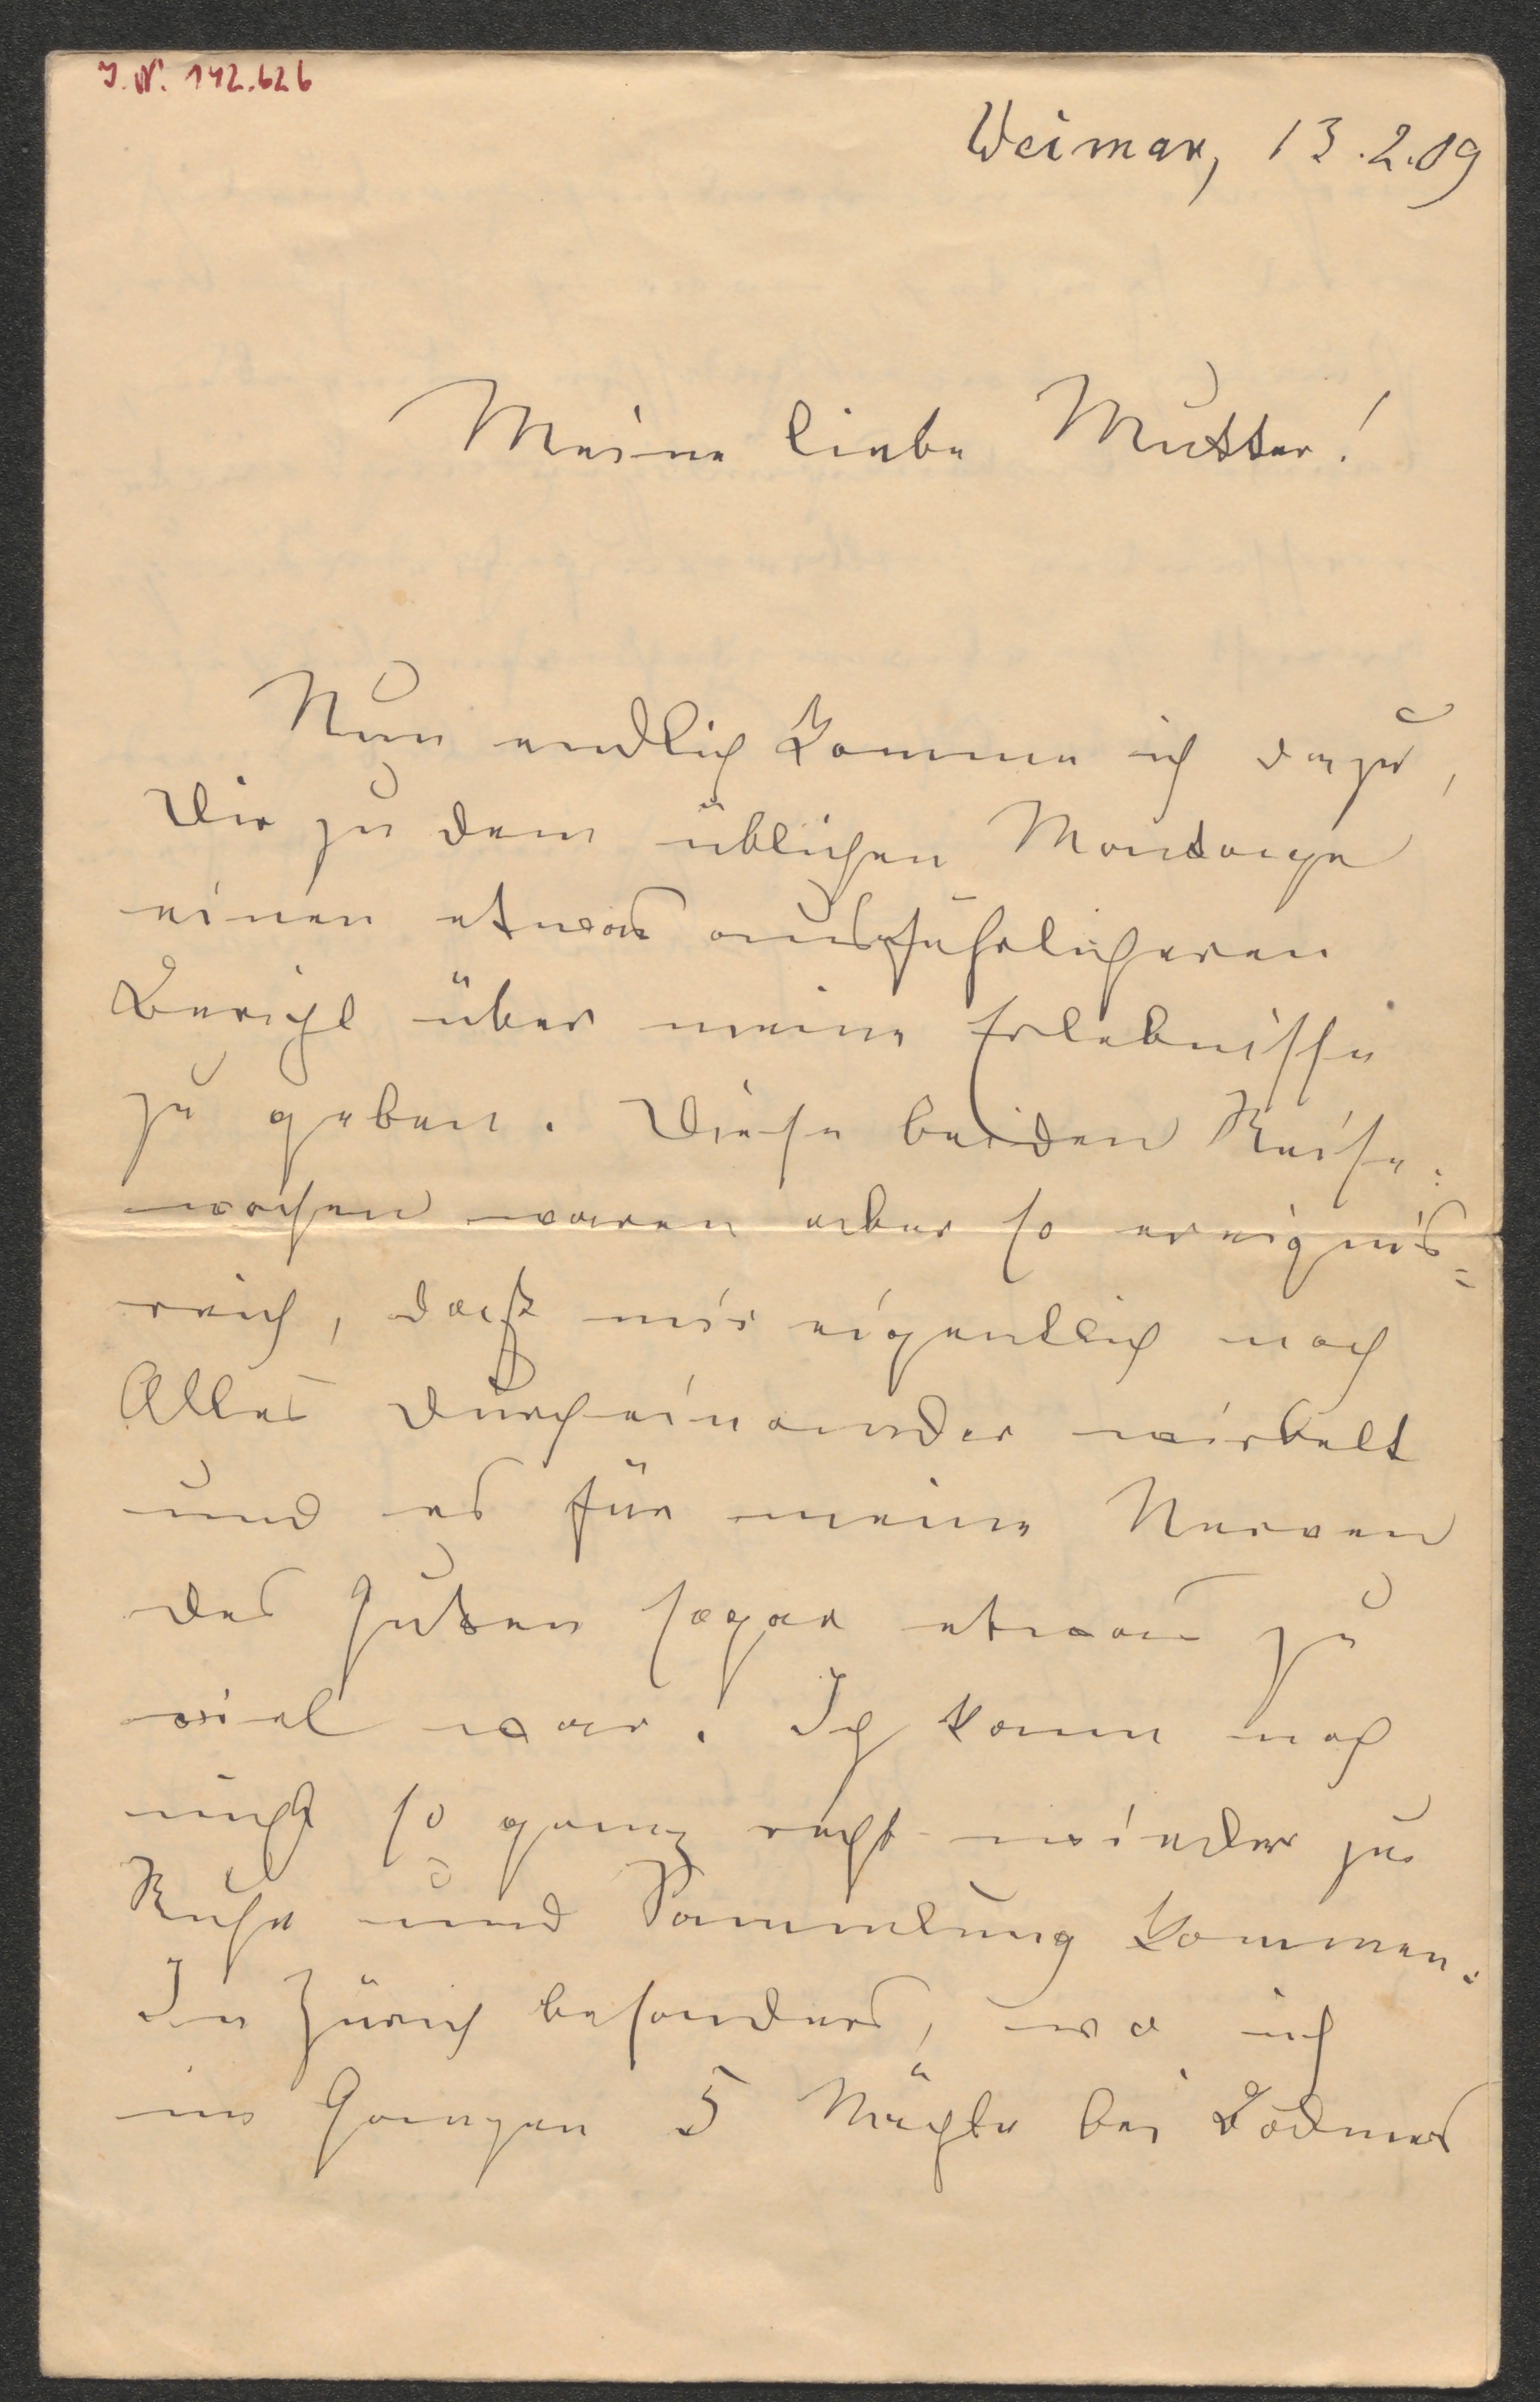 J. N. 142.626
Weimar, 13.2.09
Meine liebe Mutter!
Nun endlich komme ich dazu,
Dir zu dem üblichen Montage
einen etwas ausführlicheren
Bericht über meine Erlebnisse
zu geben. Diese beiden Reise-
wochen waren aber so ereignis=
reich, daß mir eigentlich noch
Alles durcheinander wirbelt
und es für meine Nerven
des Guten sogar etwas zu
viel war. Ich kann noch
nicht so ganz recht wieder zu
Ruhe und Sammlung kommen.
In Zürich besonders, wo ich
im Ganzen 5 Nächte bei Bodmers